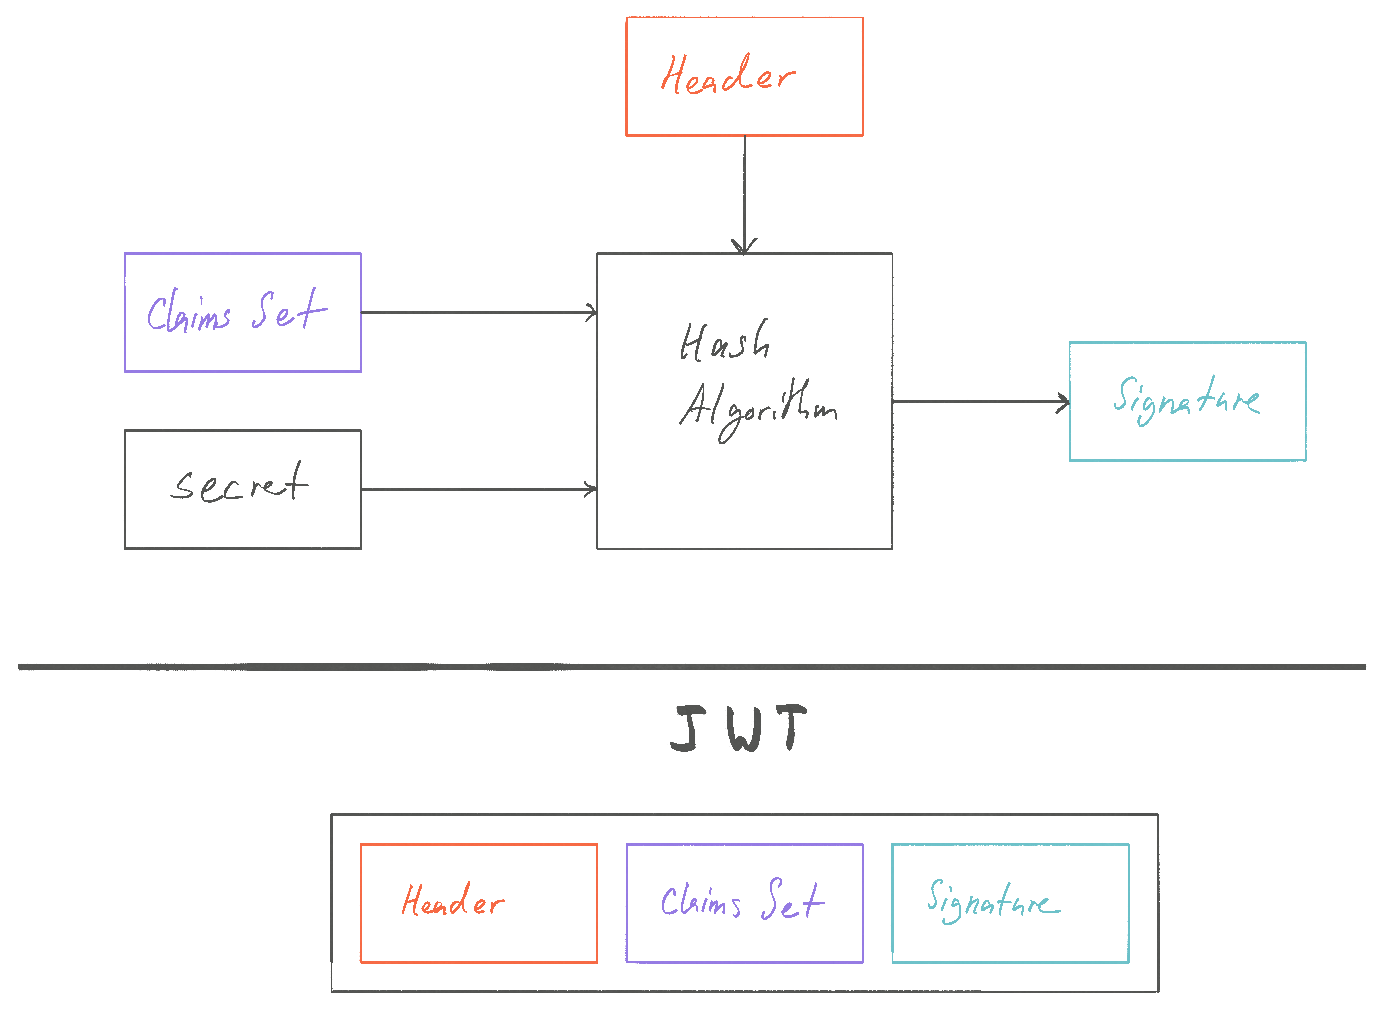 Header
Claims Set
Hash
Algorithm
Signature
secret
JWT
Header
Claims Set
Signature